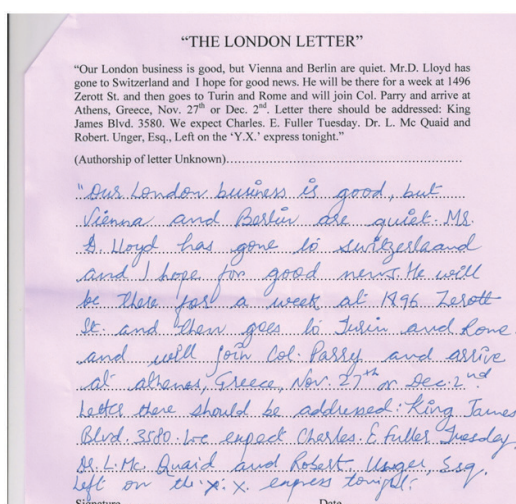 “THE LONDON LETTER”
“Our London business is good, but Vienna and Berlin are quiet. Mr.D. Lloyd has
gone to Switzerland and I hope for good news. He will be there for a week at 1496
Zerott St. and then goes to Turin and Rome and will join Col. Parry and arrive at
Athens, Greece, Nov. 27th or Dec. 2nd. Letter there should be addressed: King
James Blvd. 3580. We expect Charles. E. Fuller Tuesday. Dr. L. Mc Quaid and
Robert. Unger, Esq., Left on the ‘Y.X.’ express tonight.”
(Authorship of letter Unknown)..................................................................
"Our London business is good, but
Vienna and Berlin are quiet. Mr.
D. Lloyd has gone to Switzerlaand
and I hope for good news. He will
be there for a week at 1896 Zerott
St. and then goes to Turin and Rone
and will join Col. Parry and arrive
at athenes, Greece, Nov. 27th or Dec. 2nd.
Letter there should be addressed: King James
Blvd. 3580. We expect Charles. E. Fuller Tuesday
Dr. L. Mc. Quaid and Robert Unger, Esq.
Left on the X. express tonight.
Signature Date